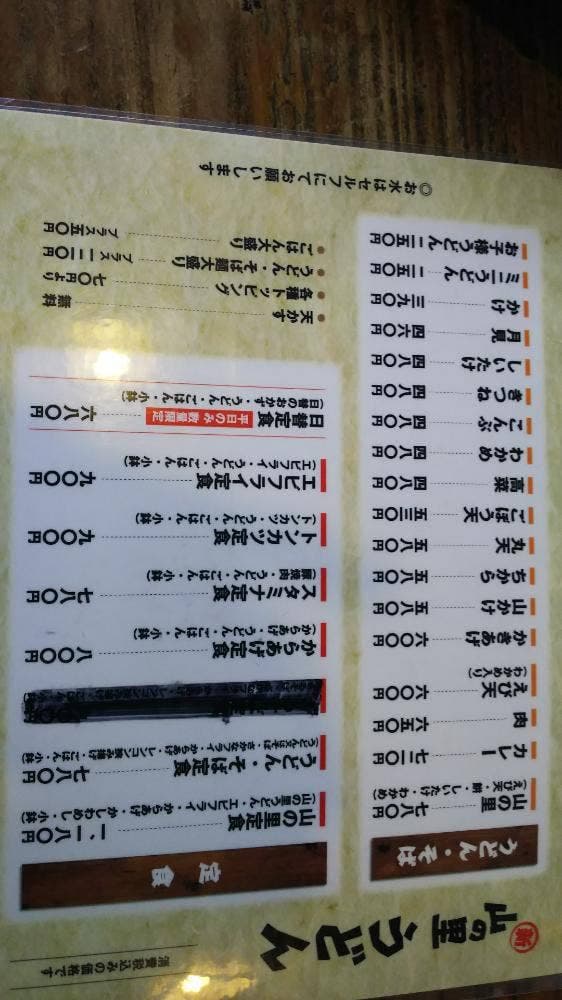 新 山の里うどん
消費税込みの価格です
うどん・そば
山の里 七八〇円
(えび天・餅・しいたけ・わかめ)
カレー 七二〇円
肉 六五〇円
えび天 六〇〇円
(わかめ入り)
かきあげ 六〇〇円
山かけ 五八〇円
ちから 五八〇円
丸天 五八〇円
ごぼう天 五三〇円
高菜 四八〇円
わかめ 四八〇円
こんぶ 四八〇円
きつね 四八〇円
しいたけ 四八〇円
月見 四六〇円
かけ 三九〇円
ミニうどん 二五〇円
お子様うどん 二五〇円
定食
山の里定食 一、一八〇円
(山の里うどん・エビフライ・からあげ・かしわめし・小鉢)
うどん・そば定食 七八〇円
(うどん又はそば・さかなフライ・からあげ・レンコン挟み揚げ・ごはん・小鉢)
からあげ定食 八〇〇円
(からあげ・うどん・ごはん・小鉢)
スタミナ定食 七八〇円
(豚焼肉・うどん・ごはん・小鉢)
トンカツ定食 九〇〇円
(トンカツ・うどん・ごはん・小鉢)
エビフライ定食 九〇〇円
(エビフライ・うどん・ごはん・小鉢)
日替定食 平日のみ数量限定 六八〇円
(日替のおかず・うどん・ごはん・小鉢)
●天かす 無料
●各種トッピング 七〇円より
●うどん・そば麺大盛り プラス一二〇円
●ごはん大盛り プラス五〇円
◎お水はセルフにてお願いします